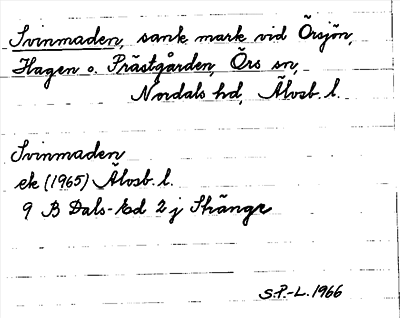 Svinmaden, sank mark vid Örsjön,
Hagen o. Prästgården, Örs sn,
Nordals hd, Älvsb. l.
Svinmaden
ek (1965) Älvsb. l.
9 B Dals-Ed 2 j Skänge
S.P.-L. 1966